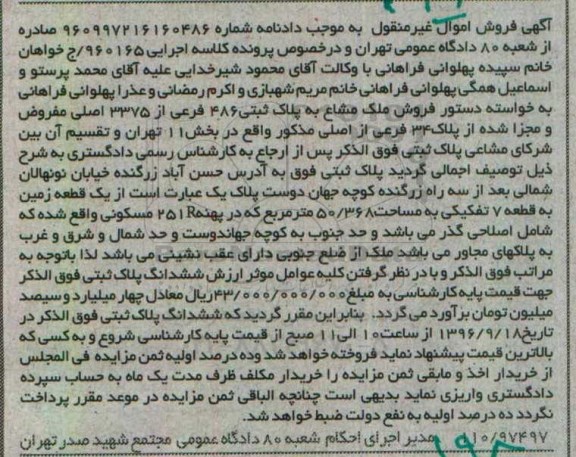 آگهی فروش اموال غیرمنقول به موجب دادنامه شماره ۹۶۰۹۹۷۲۱۶۱۶۰۴۸۶ صادره
از شعبه ۸۰ دادگاه عمومی تهران و درخصوص پرونده کلاسه اجرایی ۹۶۰۱۶۵/ج خواهان
خانم سپیده پهلوانی فراهانی با وکالت آقای محمود شیرخدایی علیه آقای محمد پرستو و
اسماعیل همگی پهلوانی فراهانی خانم مریم شهبازی و اکرم رمضانی و عذرا پهلوانی فراهانی
به خواسته دستور فروش ملک مشاع به پلاک ثبتی ۴۸۶ فرعی از ۳۳۷۵ اصلی مفروض
و مجزا شده از پلاک ۳۴ فرعی از اصلی مذکور واقع در بخش ۱۱ تهران و تقسیم آن بین
شرکای مشاعی پلاک ثبتی فوق الذکر پس از ارجاع به کارشناس رسمی دادگستری به شرح
ذیل توصیف اجمالی گردید پلاک ثبتی فوق به آدرس حسن آباد زرگنده خیابان نونهالان
شمالی بعد از سه راه زرگنده کوچه جهان دوست پلاک یک عبارت است از یک قطعه زمین
به قطعه ۷ تفکیکی به مساحت ۵۰/۳۶۸ مترمربع که در پهنه R۲۵۱ مسکونی واقع شده که
شامل اصلاحی گذر می باشد و حد جنوب به کوچه جهاندوست و حد شمال و شرق و غرب
به پلاکهای مجاور می باشد ملک از ضلع جنوبی دارای عقب نشینی می باشد لذا باتوجه به
مراتب فوق الذکر و با در نظر گرفتن کلیه عوامل موثر ارزش ششدانگ پلاک ثبتی فوق الذکر
جهت قیمت پایه کارشناسی به مبلغ ۴۳/۰۰۰/۰۰۰/۰۰۰ ریال معادل چهار میلیارد و سیصد
میلیون تومان برآورد می گردد. بنابراین مقرر گردید که ششدانگ پلاک ثبتی فوق الذکر در
تاریخ ۱۳۹۶/۹/۱۸ از ساعت ۱۰ الی ۱۱ صبح از قیمت پایه کارشناسی شروع و به کسی که
بالاترین قیمت پیشنهاد نماید فروخته خواهد شد وده درصد اولیه ثمن مزایده فی المجلس
از خریدار اخذ و مابقی ثمن مزایده را خریدار مکلف ظرف مدت یک ماه به حساب سپرده
دادگستری واریزی نماید بدیهی است چنانچه الباقی ثمن مزایده در موعد مقرر پرداخت
نگردد ده درصد اولیه به نفع دولت ضبط خواهد شد.
۱۱۰/۹۷۴۹۷ مدیر اجرای احکام شعبه ۸۰ دادگاه عمومی مجتمع شهید صدر تهران